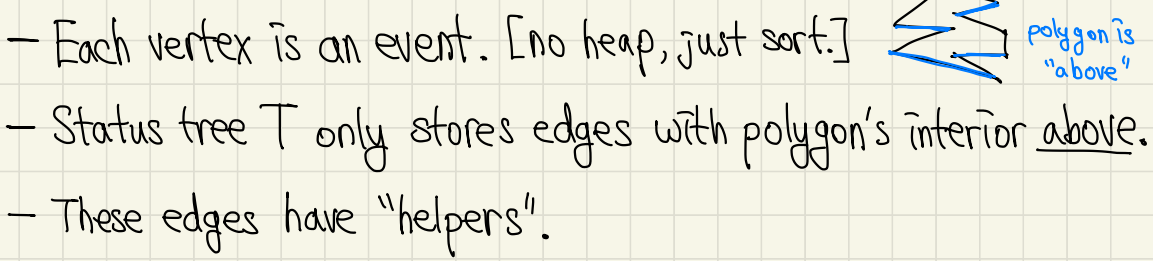 - Each vertex is an event. [no heap, just sort.]
polygon is
"above"
- Status tree T only stores edges with polygon's interior above.
- These edges have "helpers".